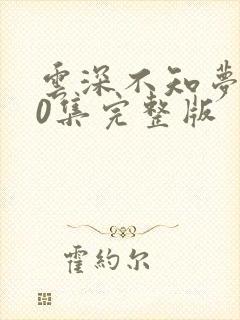 雲深不知夢
0集完整版
霍約尔